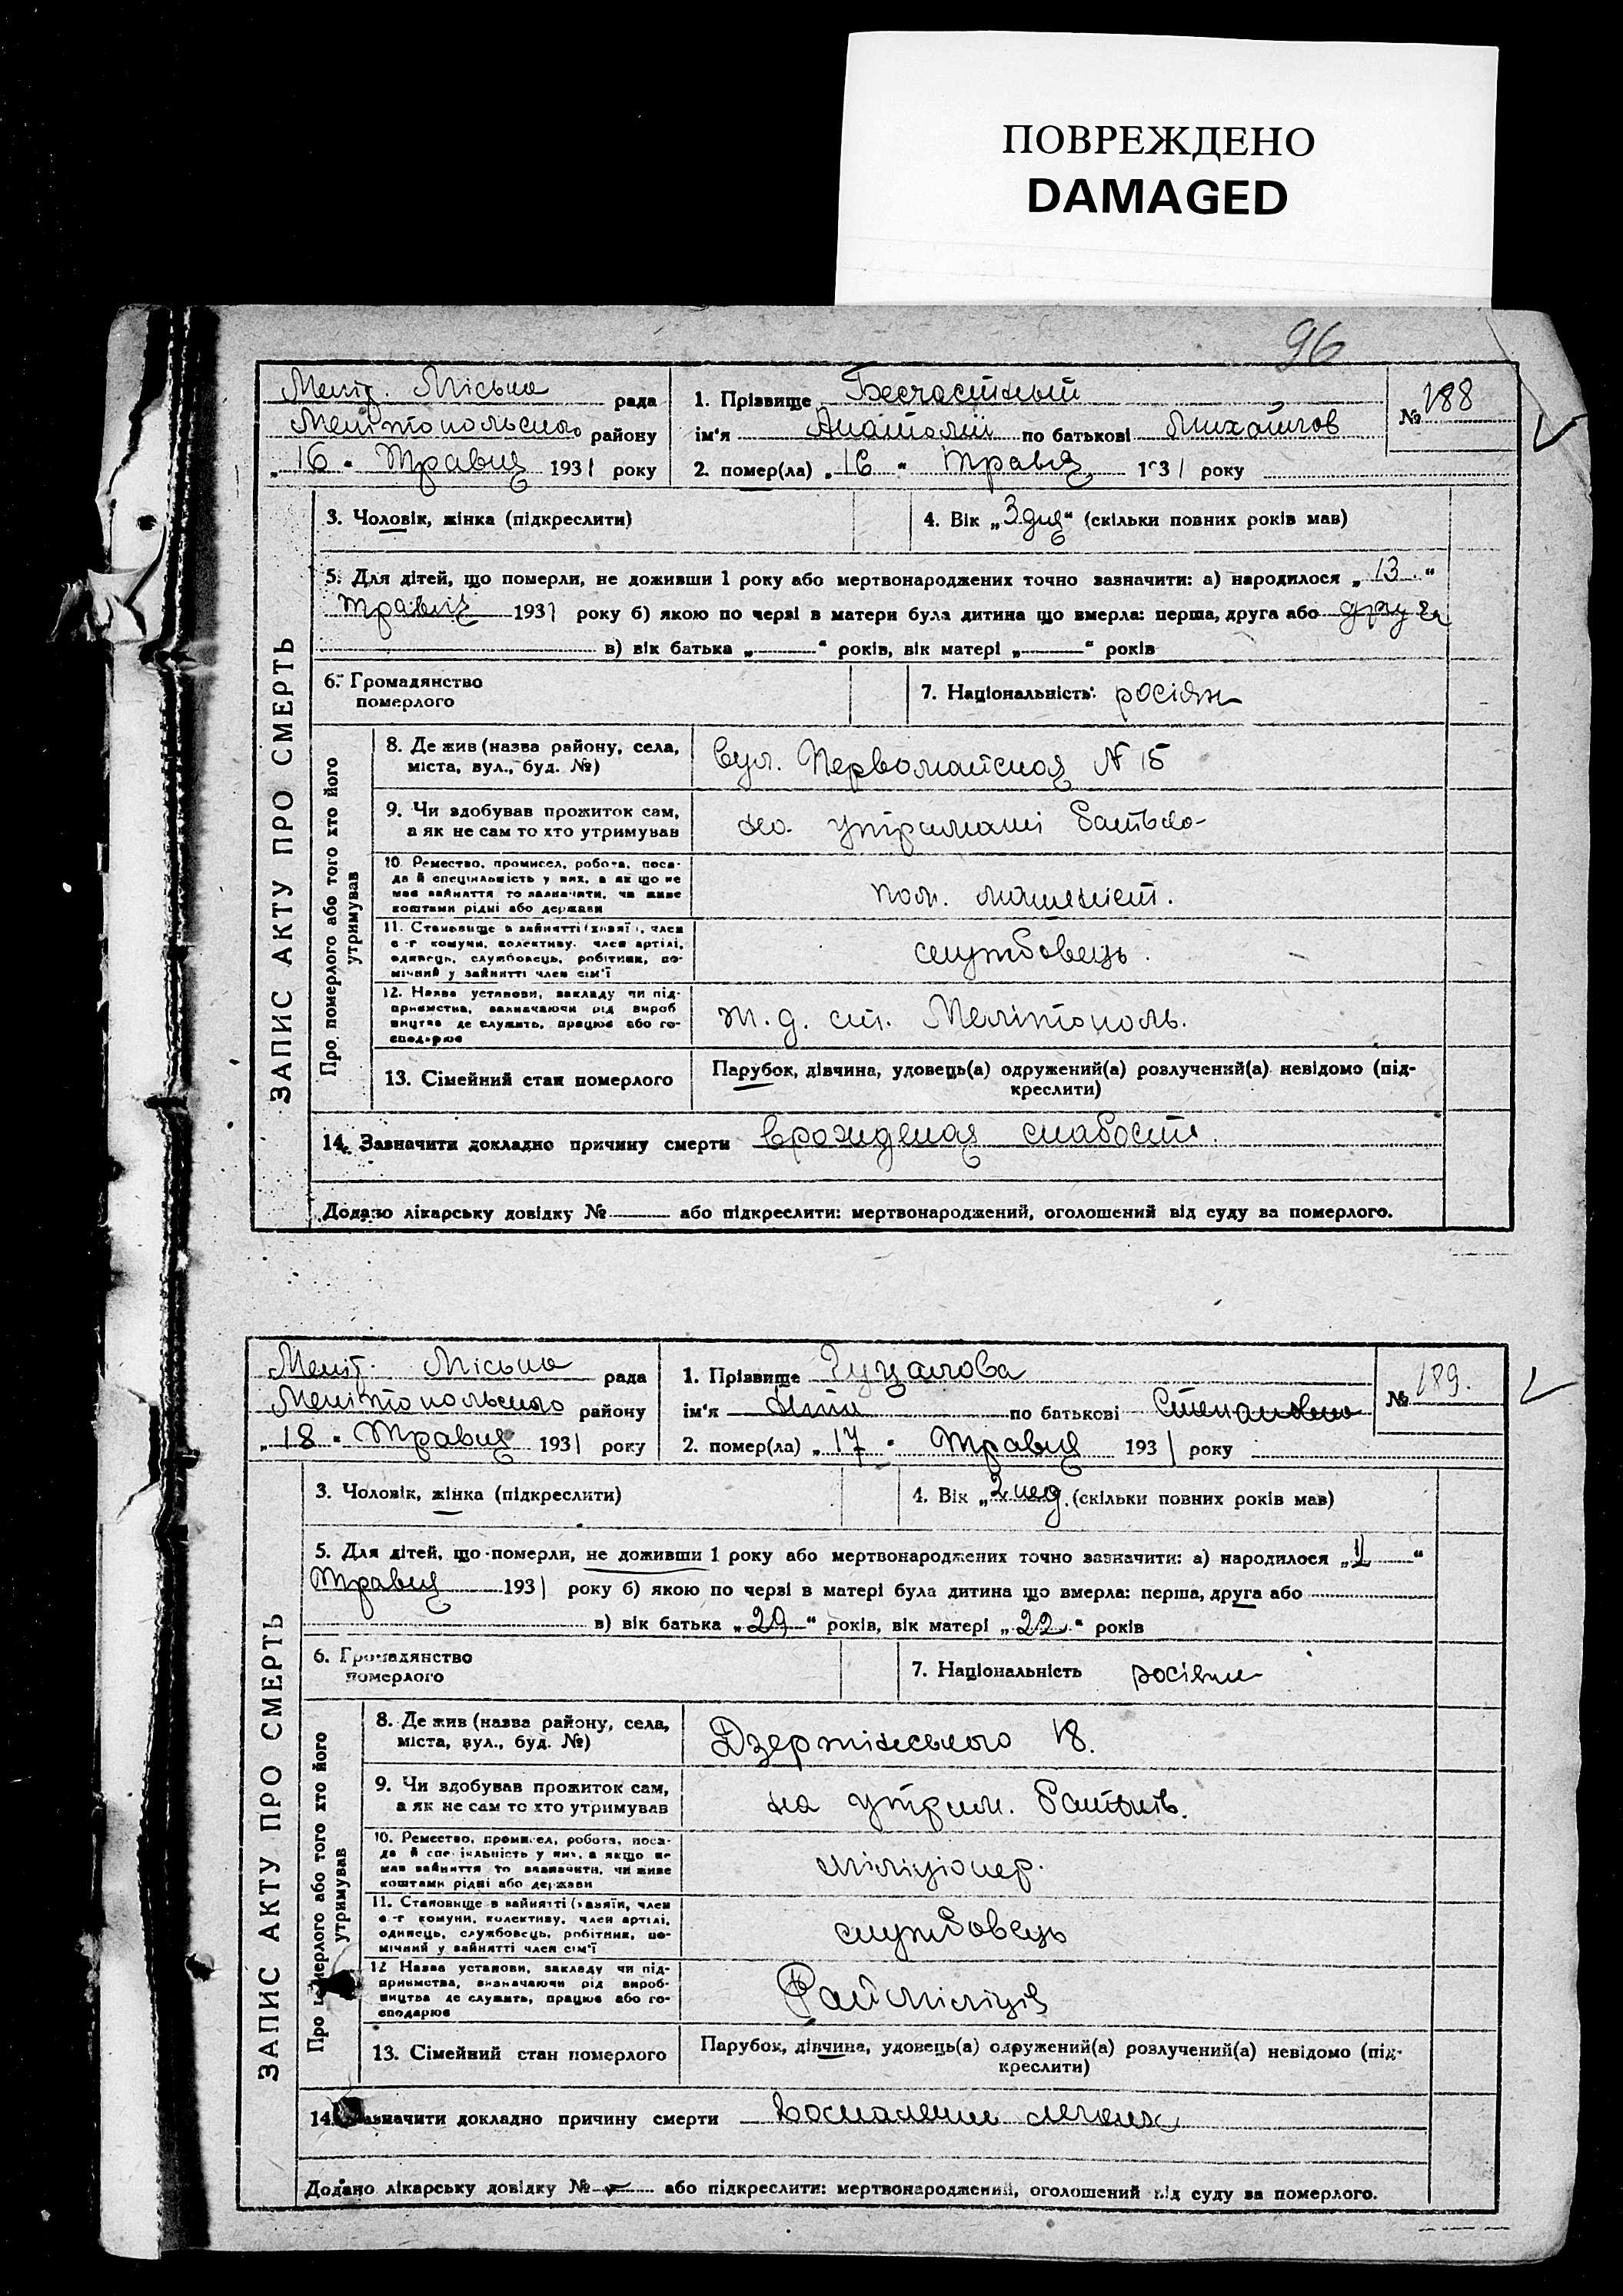 ПОВРЕЖДЕНО
DAMAGED
96
Меліт. Міська рада
Мелітопольского району
„16“ Травня 1931 року
1. Прізвище Бесчастный
ім'я Анатолій по батькові Михайлов
2. помер(ла) „16“ травня 1931 року
№ 188
ЗАПИС АКТУ ПРО СМЕРТЬ
3. Чоловік, жінка (підкреслити)
4. Вік „3 дня“ (скільки повних років мав)
5. Для дітей, що померли, не доживши 1 року або мертвонароджених точно зазначити: а) народилося „13“
травня 1931 року б) якою по черзі в матери була дитина що вмерла: перша, друга або друга
в) вік батька „ “ років, вік матері „ “ років
6. Громадянство
померлого
7. Національність: росіян
Про померлого або того хто його
утримував
8. Де жив (назва району, села,
міста, вул., буд. №)
вул. Первомайская № 15
9. Чи здобував прожиток сам,
а як не сам то хто утримував
на утриманні батька
10. Ремество, промисел, робота, поса-
да й спеціальність у них, а як що не
мав зайняття то зазначити, чи живе
коштами рідні або держави
пом. машиніст.
11. Становище в зайнятті (хазяїн, член
с-г комуни, колективу, член артілі,
одинець, службовець, робітник, по-
мічний у зайнятті член сім'ї
службовець.
12. Назва установи, закладу чи під-
приємства, зазначаючи рід вироб
ництва де служить, працює або го-
сподарює
ж. д. ст. Мелітополь.
13. Сімейний стан померлого
Парубок, дівчина, удовець(а) одружений(а) розлучений(а) невідомо (під-
креслити)
14. Зазначити докладно причину смерти врожденая слабость.
Додано лікарську довідку № або підкреслити: мертвонароджений, оголошений від суду за померлого.
Меліт. Міська рада
Мелітопольского району
„18“ Травня 1931 року
1. Прізвище
ім'я по батькові Степановна
2. помер(ла) „17“ Травня 1931 року
№ 189.
ЗАПИС АКТУ ПРО СМЕРТЬ
3. Чоловік, жінка (підкреслити)
4. Вік „2 нед. (скільки повних років мав)
5. Для дітей, що померли, не доживши 1 року або мертвонароджених точно зазначити: а) народилося „ “
Травня 1931 року б) якою по черзі в матері була дитина що вмерла: перша, друга або
в) вік батька „29“ років, вік матері „22“ років
6. Громадянство
померлого
7. Національність росіянк
Про померлого або того хто його
утримував
8. Де жив (назва району, села,
міста, вул., буд. №)
Дзержінського 18.
9. Чи здобував прожиток сам,
а як не сам то хто утримував
на утрим. батьків.
10. Ремество, промисел, робота, поса-
да й спеціяльність у них, а якщо не
мав зайняття то зазначити, чи живе
коштами рідні або держави
міліціонер.
11. Становище в зайнятті (хазяїн, член
с-г комуни, колективу, член артілі,
одинець, службовець, робітник, по-
мічний у зайнятті член сім'ї
службовець
12. Назва установи, закладу чи під-
приємства, визначаючи рід вироб-
ництва де служить, працює або го-
сподарює
Райміліція
13. Сімейний стан померлого
Парубок, дівчина, удовець(а) одружений(а) розлучений(а) невідомо (під-
креслити)
14. Зазначити докладно причину смерти Воспаление легких
Додано лікарську довідку № або підкреслити: мертвонароджений, оголошений від суду за померлого.